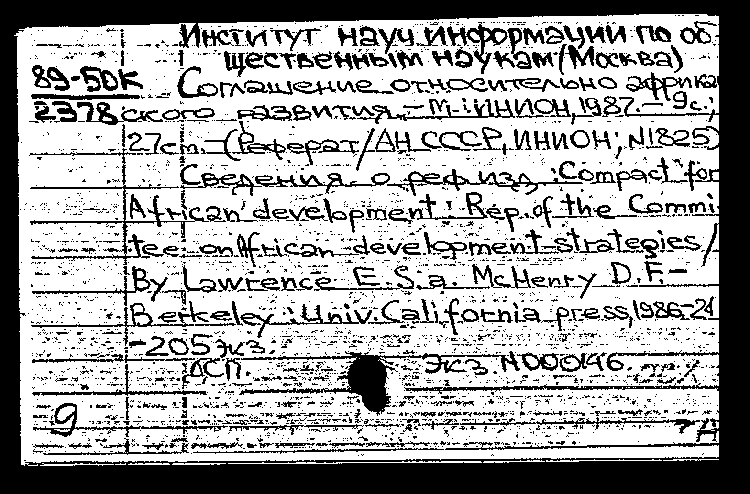 Институт науч. информации по об-
щественным наукам (Москва)
89-50К
2378
Соглашение относительно африкан
ского развития. - М.: ИНИОН, 1987. - 9 с.;
27 cm. - (Реферат / АН СССР, ИНИОН; N1825)
Сведения о реф. изд.: Compact for
African development: Rep. of the Commi-
tee on African development strategies /
By Lawrence E.S. a. McHenry D.F. -
Berkeley: Univ. California press, 1986-24
- 205 экз.
ДСП. Экз N000146.
9